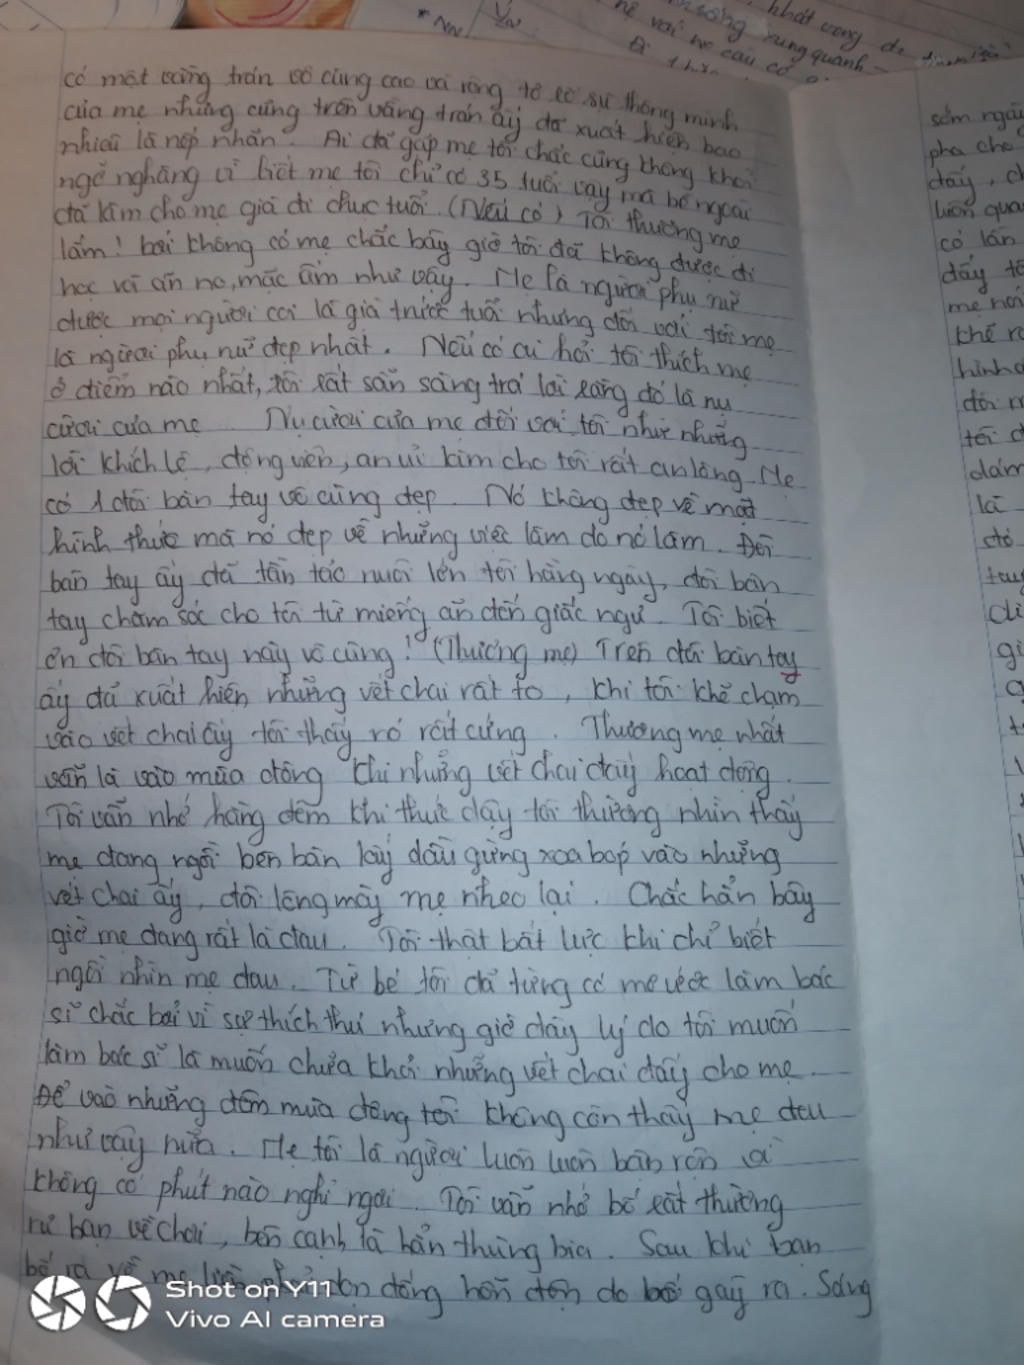 có một vầng trán vô cùng cao và rộng tỏ rõ sự thông minh
của mẹ nhưng cũng trên vầng trán ấy đã xuất hiện bao
nhiêu là nếp nhăn. Ai đã gặp mẹ tôi chắc cũng không khỏi
ngỡ ngàng vì biết mẹ tôi chỉ có 35 tuổi vậy mà bề ngoài
đã làm cho mẹ già đi chục tuổi. (Nếu có) Tôi thương mẹ
lắm! bởi không có mẹ chắc bây giờ tôi đã không được đi
học và ăn no, mặc ấm như vậy. Mẹ là người phụ nữ
được mọi người coi là già trước tuổi nhưng đối với tôi mẹ
là người phụ nữ đẹp nhất. Nếu có ai hỏi tôi thích mẹ
ở điểm nào nhất, tôi rất sẵn sàng trả lời rằng đó là nụ
cười của mẹ Nụ cười của mẹ đối với tôi như những
lời khích lệ, động viên, an ủi làm cho tôi rất an lòng. Mẹ
có 1 đôi bàn tay vô cùng đẹp. Nó không đẹp về mặt
hình thức mà nó đẹp về những việc làm do nó làm. Đôi
bàn tay ấy đã tần tảo nuôi lớn tôi hằng ngày, đôi bàn
tay chăm sóc cho tôi từ miếng ăn đến giấc ngủ. Tôi biết
ơn đôi bàn tay này vô cùng! (Thương mẹ) Trên đôi bàn tay
ấy đã xuất hiện những vết chai rất to, khi tôi khẽ chạm
vào vết chai ấy tôi thấy nó rất cứng. Thương mẹ nhất
vẫn là vào mùa đông khi những vết chai đấy hoạt động.
Tôi vẫn nhớ hằng đêm khi thức dậy tôi thường nhìn thấy
mẹ đang ngồi bên bàn lấy dầu gừng xoa bóp vào những
vết chai ấy, đôi lông mày mẹ nheo lại. Chắc hẳn bây
giờ mẹ đang rất là đau. Tôi thật bất lực khi chỉ biết
ngồi nhìn mẹ đau. Từ bé tôi đã từng có mơ ước làm bác
sĩ chắc bởi vì sự thích thú nhưng giờ đây lý do tôi muốn
làm bác sĩ là muốn chữa khỏi những vết chai đấy cho mẹ.
Để vào những đêm mùa đông tôi không còn thấy mẹ đau
như vậy nữa. Mẹ tôi là người luôn luôn bận rộn và
không có phút nào nghỉ ngơi. Tôi vẫn nhớ bố rất thường
rủ bạn về chơi, bên cạnh là hẳn thùng bia. Sau khi bạn
bố ra về mẹ dọn đống hỗn độn do bố gây ra. Sáng
sớm ngày
pha cho
đấy
luôn qua
có lần
đấy tô
mẹ nói
tôi
là
đó
Shot on Y11
Vivo AI camera